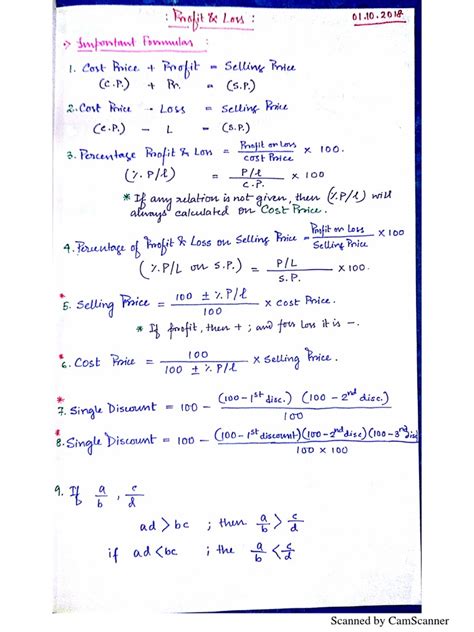 : Profit & Loss :
01.10.2018
Important Formulas :
1. Cost Price + Profit = Selling Price
(C.P.) + Pr. = (S.P.)
2. Cost Price - Loss = Selling Price
(C.P.) - L = (S.P.)
3. Percentage Profit & Loss = Profit or Loss / Cost Price × 100.
(%P/l) = P/l / C.P. × 100
* If any relation is not given, then (%P/l) will
always calculated on Cost Price.
4. Percentage of Profit & Loss on Selling Price = Profit or Loss / Selling Price × 100
(%P/L on S.P.) = P/L / S.P. × 100.
* 5. Selling Price = 100 ± %P/l / 100 × Cost Price.
* If profit, then + ; and for loss it is -.
* 6. Cost Price = 100 / 100 ± %P/l × Selling Price.
* 7. Single Discount = 100 - (100-1st disc.) (100-2nd disc.) / 100
* 8. Single Discount = 100 - (100-1st discount)(100-2nd disc)(100-3rd disc / 100 × 100
9. If a/b , c/d
ad > bc ; then a/b > c/d
if ad < bc ; the a/b < c/d
Scanned by CamScanner